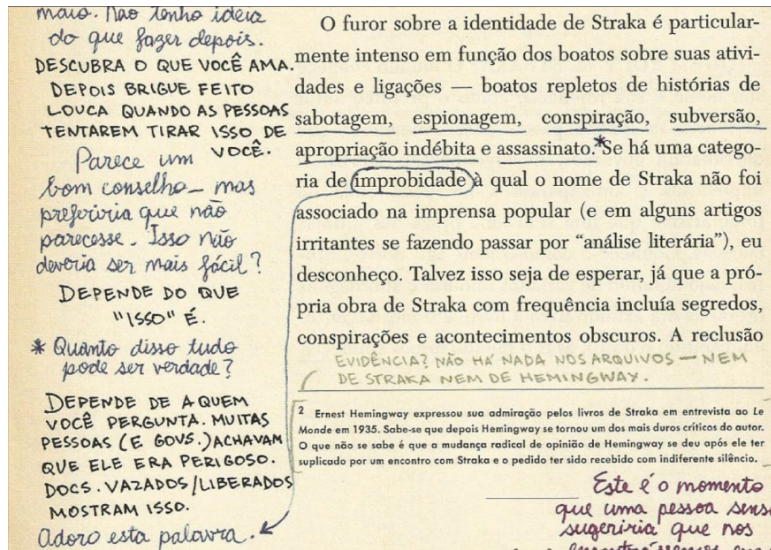 maio. Não tenho ideia
do que fazer depois.
DESCUBRA O QUE VOCÊ AMA.
DEPOIS BRIGUE FEITO
LOUCA QUANDO AS PESSOAS
TENTAREM TIRAR ISSO DE
VOCÊ.
Parece um
bom conselho – mas
preferiria que não
parecesse. Isso não
deveria ser mais fácil?
DEPENDE DO QUE
"ISSO" É.
* Quanto disso tudo
pode ser verdade?
DEPENDE DE A QUEM
VOCÊ PERGUNTA. MUITAS
PESSOAS (E GOVS.) ACHAVAM
QUE ELE ERA PERIGOSO.
DOCS. VAZADOS/LIBERADOS
MOSTRAM ISSO.
Adoro esta palavra.
O furor sobre a identidade de Straka é particular-
mente intenso em função dos boatos sobre suas ativi-
dades e ligações — boatos repletos de histórias de
sabotagem, espionagem, conspiração, subversão,
apropriação indébita e assassinato.* Se há uma catego-
ria de improbidade à qual o nome de Straka não foi
associado na imprensa popular (e em alguns artigos
irritantes se fazendo passar por “análise literária”), eu
desconheço. Talvez isso seja de esperar, já que a pró-
pria obra de Straka com frequência incluía segredos,
conspirações e acontecimentos obscuros. A reclusão
EVIDÊNCIA? NÃO HÁ NADA NOS ARQUIVOS — NEM
DE STRAKA NEM DE HEMINGWAY.
2 Ernest Hemingway expressou sua admiração pelos livros de Straka em entrevista ao Le
Monde em 1935. Sabe-se que depois Hemingway se tornou um dos mais duros críticos do autor.
O que não se sabe é que a mudança radical de opinião de Hemingway se deu após ele ter
suplicado por um encontro com Straka e o pedido ter sido recebido com indiferente silêncio.
Este é o momento
que uma pessoa sens
sugeriria que nos